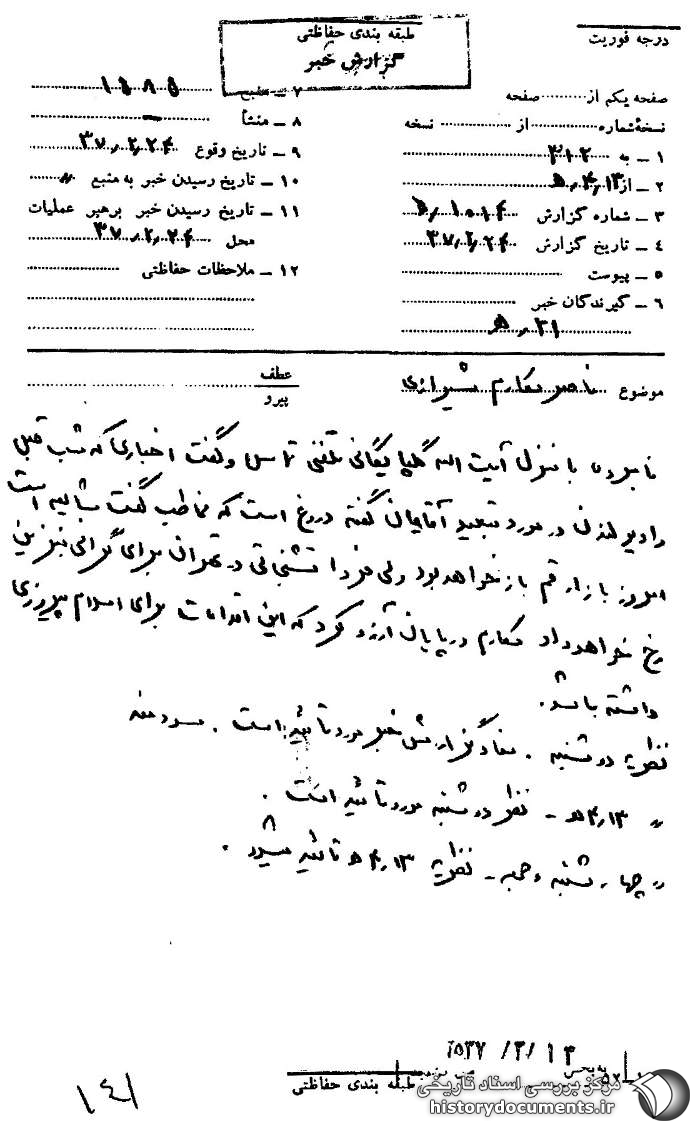 درجه فوریت
طبقه بندی حفاظتی
گزارش خبر
صفحه یکم از ........ صفحه
نسخه شماره ........ از ........ نسخه
۱ – به ۳۱۲
۲ – از ۴/۱۳ ه
۳ – شماره گزارش
۴ – تاریخ گزارش ۳۷/۲/۲۴
۵ – پیوست
۶ – گیرندگان خبر
ه ۲۱
۷ – منبع ۱۵۸۵
۸ – منشأ –
۹ – تاریخ وقوع ۳۷/۲/۲۴
۱۰ – تاریخ رسیدن خبر به منبع "
۱۱ – تاریخ رسیدن خبر برهبر عملیات
محل ۳۷/۲/۲۴
۱۲ – ملاحظات حفاظتی
موضوع ناصر مکارم شیرازی
عطف
پیرو
نامبرده با منزل آیت اله گلپایگانی تلفنی تماس و گفت اخباری که شب قبل
رادیو لندن در مورد تبعید آقایان گفته دروغ است که مخاطب گفت است
امروز بازار قم باز نخواهد بود ولی فردا تشنجاتی در تهران برای گرانی بنزین
رخ خواهد داد مکارم در پایان آرزو کرد که این اقدامات برای اسلام پیروزی
داشته باشد.
نظریه دوشنبه . مفاد گزارش خبر مورد تأئید است .
" ۴/۱۳ ه – نظر دوشنبه مورد تأئید است .
" چهارشنبه – نظریه ۴/۱۳ ه تأئید میشود .
۲۵۳۷/۳/۱۳
طبقه بندی حفاظتی
۱۴۱
مرکز بررسی اسناد تاریخی
historydocuments.ir